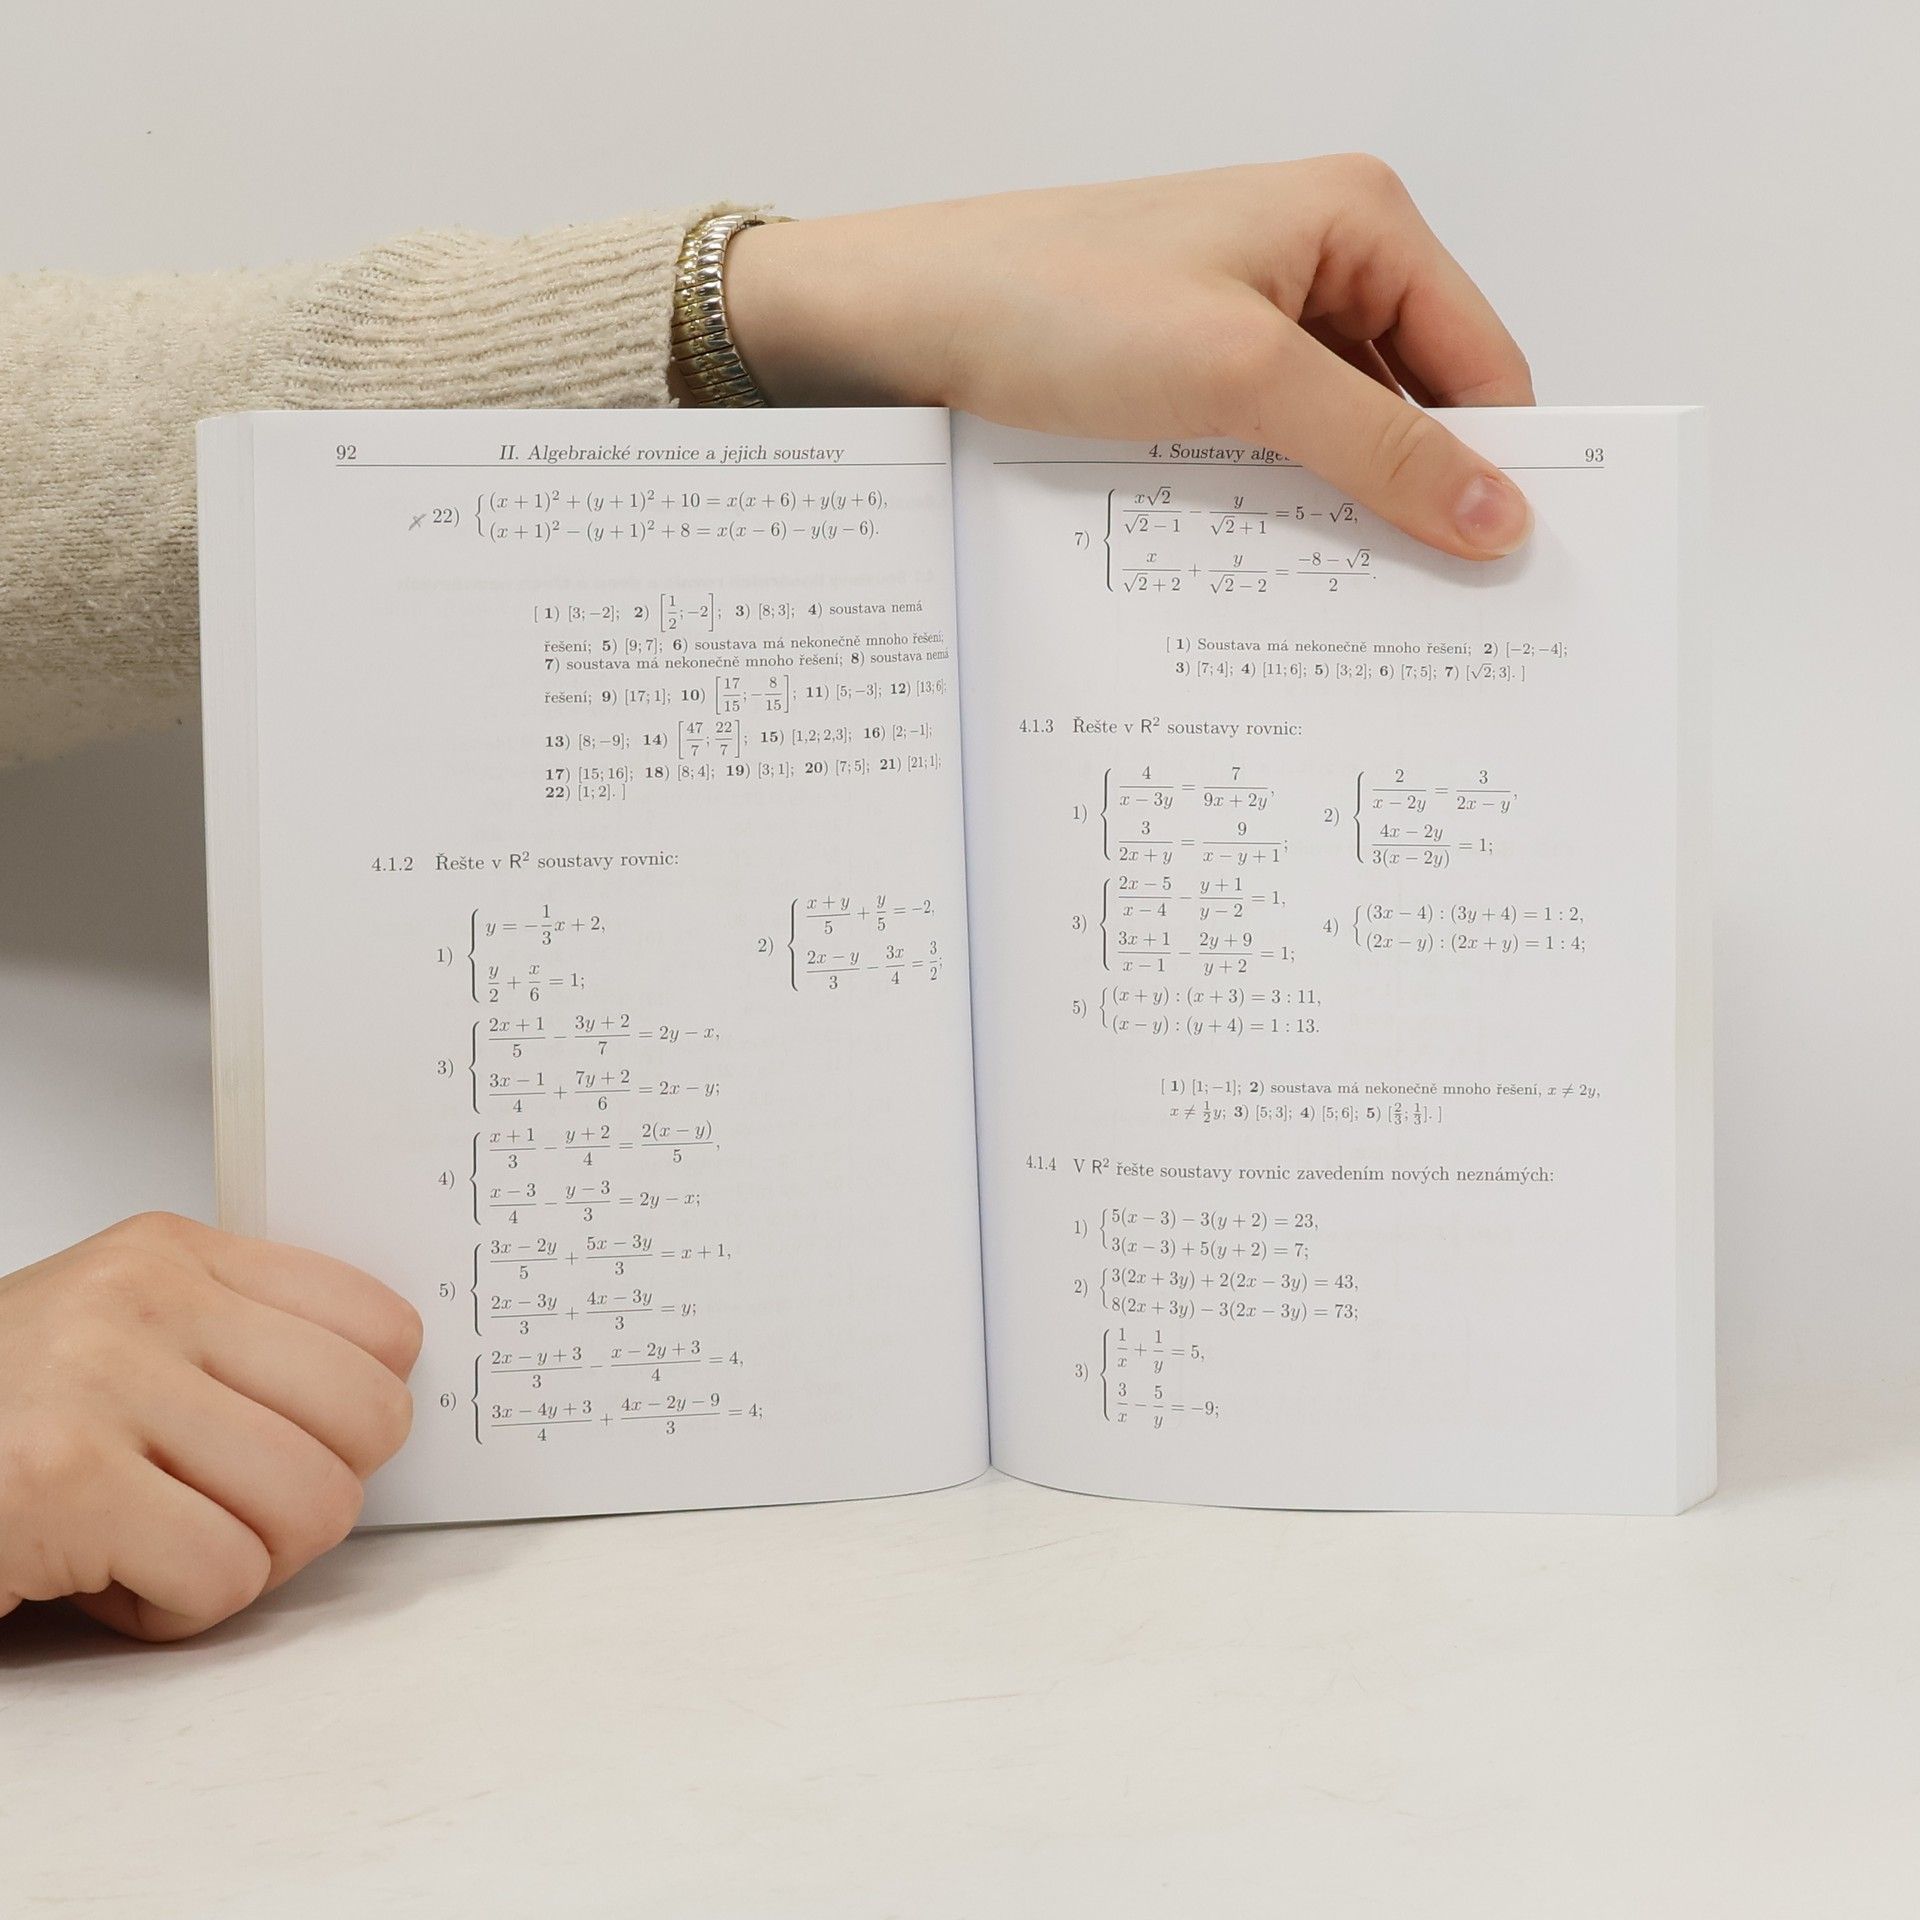 92 II. Algebraické rovnice a jejich soustavy
22) { (x + 1)² + (y + 1)² + 10 = x(x + 6) + y(y + 6),
(x + 1)² − (y + 1)² + 8 = x(x − 6) − y(y − 6).
[ 1) [3; −2]; 2) [1/2; −2]; 3) [8; 3]; 4) soustava nemá
řešení; 5) [9; 7]; 6) soustava má nekonečně mnoho řešení;
7) soustava má nekonečně mnoho řešení; 8) soustava nemá
řešení; 9) [17; 1]; 10) [17/15; −8/15]; 11) [5; −3]; 12) [13; 6];
13) [8; −9]; 14) [47/7; 22/7]; 15) [1,2; 2,3]; 16) [2; −1];
17) [15; 16]; 18) [8; 4]; 19) [3; 1]; 20) [7; 5]; 21) [21; 1];
22) [1; 2]. ]
4.1.2 Řešte v R² soustavy rovnic:
1) { y = −1/3 x + 2,
y/2 + x/6 = 1;
2) { (x + y)/5 + y/5 = −2,
(2x − y)/3 − 3x/4 = 3/2;
3) { (2x + 1)/5 − (3y + 2)/7 = 2y − x,
(3x − 1)/4 + (7y + 2)/6 = 2x − y;
4) { (x + 1)/3 − (y + 2)/4 = 2(x − y)/5,
(x − 3)/4 − (y − 3)/3 = 2y − x;
5) { (3x − 2y)/5 + (5x − 3y)/3 = x + 1,
(2x − 3y)/3 + (4x − 3y)/3 = y;
6) { (2x − y + 3)/3 − (x − 2y + 3)/4 = 4,
(3x − 4y + 3)/4 + (4x − 2y − 9)/3 = 4;
4. Soustavy 93
7) { x√2/(√2 − 1) − y/(√2 + 1) = 5 − √2,
x/(√2 + 2) + y/(√2 − 2) = (−8 − √2)/2.
[ 1) Soustava má nekonečně mnoho řešení; 2) [−2; −4];
3) [7; 4]; 4) [11; 6]; 5) [3; 2]; 6) [7; 5]; 7) [√2; 3]. ]
4.1.3 Řešte v R² soustavy rovnic:
1) { 4/(x − 3y) = 7/(9x + 2y),
3/(2x + y) = 9/(x − y + 1);
2) { 2/(x − 2y) = 3/(2x − y),
(4x − 2y)/(3(x − 2y)) = 1;
3) { (2x − 5)/(x − 4) − (y + 1)/(y − 2) = 1,
(3x + 1)/(x − 1) − (2y + 9)/(y + 2) = 1;
4) { (3x − 4) : (3y + 4) = 1 : 2,
(2x − y) : (2x + y) = 1 : 4;
5) { (x + y) : (x + 3) = 3 : 11,
(x − y) : (y + 4) = 1 : 13.
[ 1) [1; −1]; 2) soustava má nekonečně mnoho řešení, x ≠ 2y,
x ≠ 1/2 y; 3) [5; 3]; 4) [5; 6]; 5) [2/3; 1/3]. ]
4.1.4 V R² řešte soustavy rovnic zavedením nových neznámých:
1) { 5(x − 3) − 3(y + 2) = 23,
3(x − 3) + 5(y + 2) = 7;
2) { 3(2x + 3y) + 2(2x − 3y) = 43,
8(2x + 3y) − 3(2x − 3y) = 73;
3) { 1/x + 1/y = 5,
3/x − 5/y = −9;